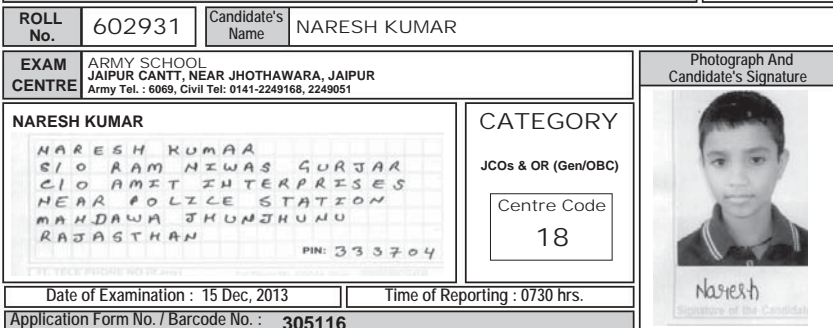 ROLL No. 602931 Candidate's Name NARESH KUMAR
EXAM CENTRE
ARMY SCHOOL
JAIPUR CANTT, NEAR JHOTHAWARA, JAIPUR
Army Tel. : 6069, Civil Tel: 0141-2249168, 2249051
Photograph And
Candidate's Signature
NARESH KUMAR
NARESH KUMAR
S/O RAM NIWAS GURJAR
C/O AMIT INTERPRISES
NEAR POLICE STATION
MAHDAWA JHUNJHUNU
RAJASTHAN
PIN: 333704
CATEGORY
JCOs & OR (Gen/OBC)
Centre Code
18
Naresh
Signature of the Candidat
Date of Examination : 15 Dec, 2013
Time of Reporting : 0730 hrs.
Application Form No. / Barcode No. : 305116